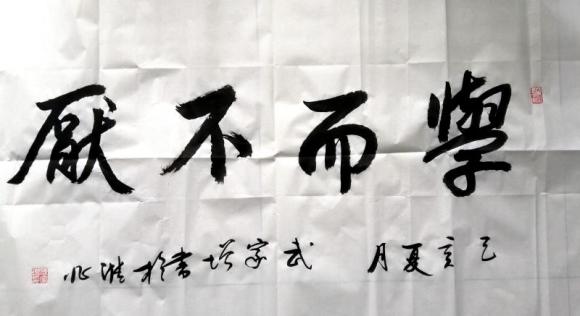 學而不厭
己亥夏月 武家增書於淮北